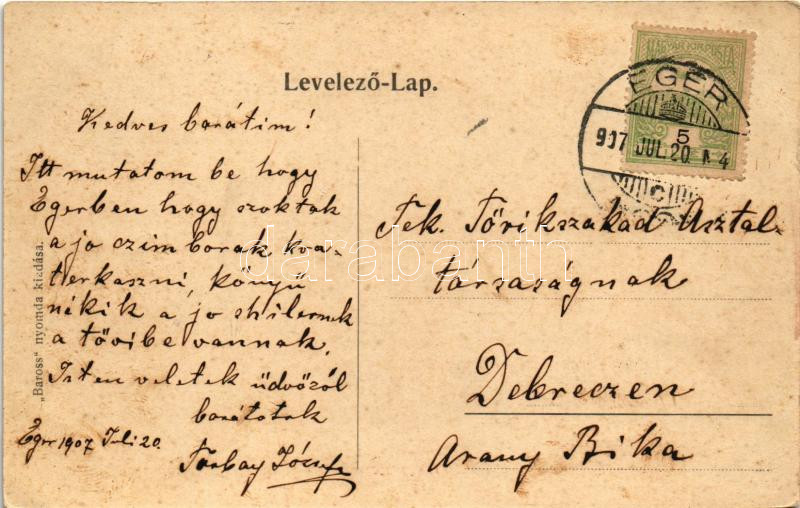 Levelező-Lap.
MAGYAR KIR. POSTA
EGER
5
907 JUL. 20. N 4
C
Kedves barátim!
Itt mutatom be hogy
Egerben hogy szoktak
a jo czimborak kva-
terkaszni, könyü
nékik a jo shilernek
a tövibe vannak.
Isten veletek üdvözöl
barátotok
Eger 1907 Juli 20.
Torbay József
Tek. Törikszakad Asztal-
társaságnak
Debreczen
Arany Bika
„Baross" nyomda kiadása.
darabanth